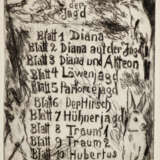 der
Jagd
Blatt 1 Diana
Blatt 2 Diana auf der Jagd
Blatt 3 Diana und Akteon
Blatt 4 Löwenjagd
Blatt 5 Panthere jagd
Blatt 6 Der Hirsch
Blatt 7 Hühnerjagd
Blatt 8 Traum 1
Blatt 9 Traum 2
Blatt 10 Hubertus